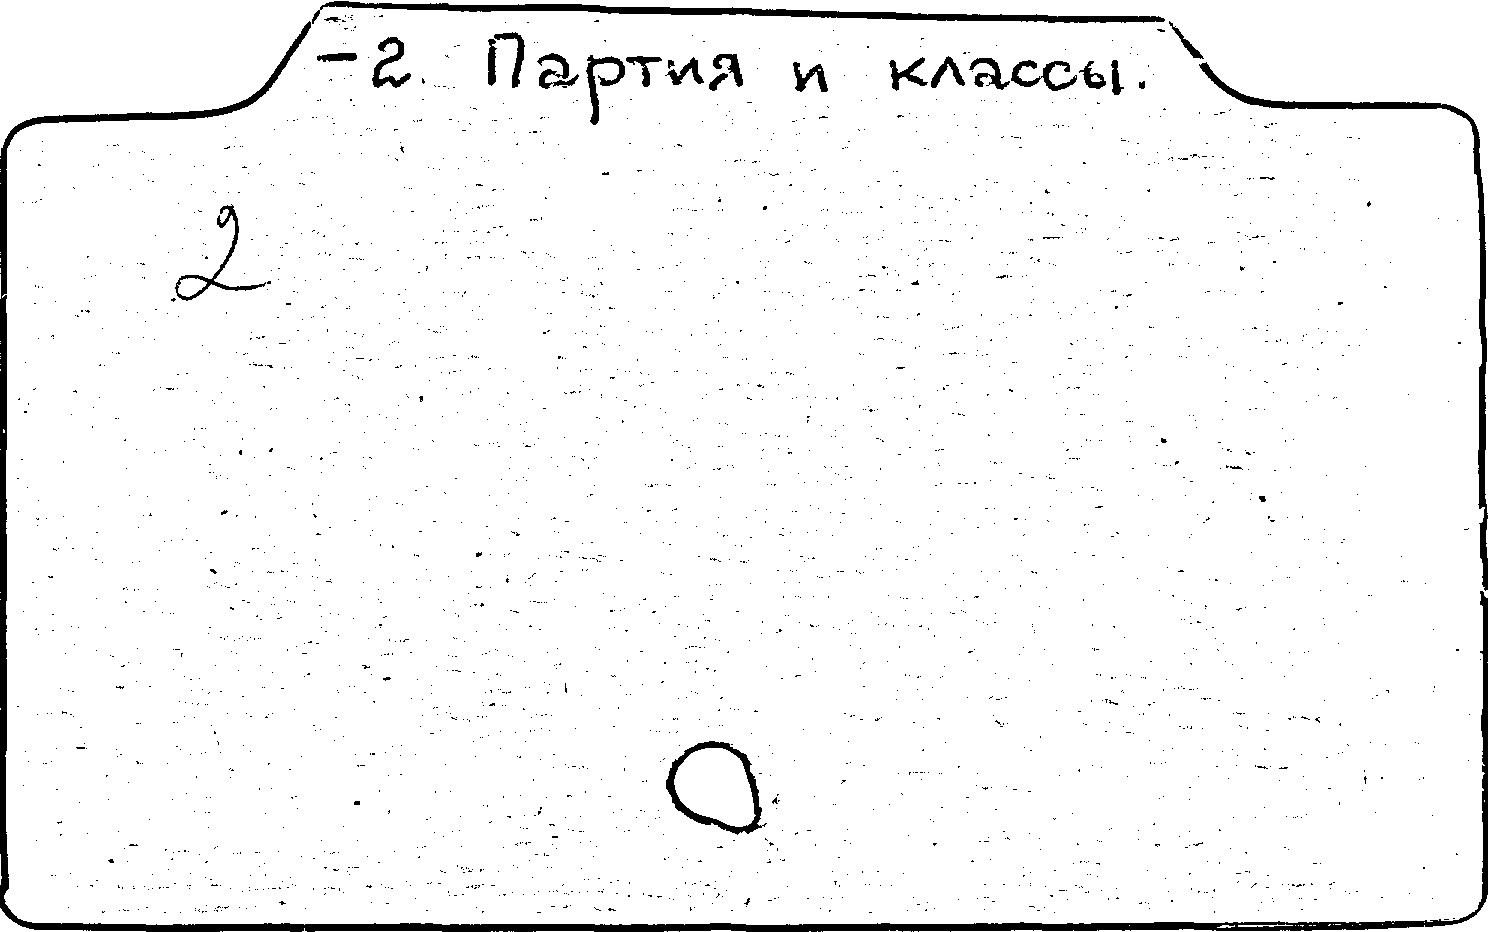 -2. Партия и классы.
2